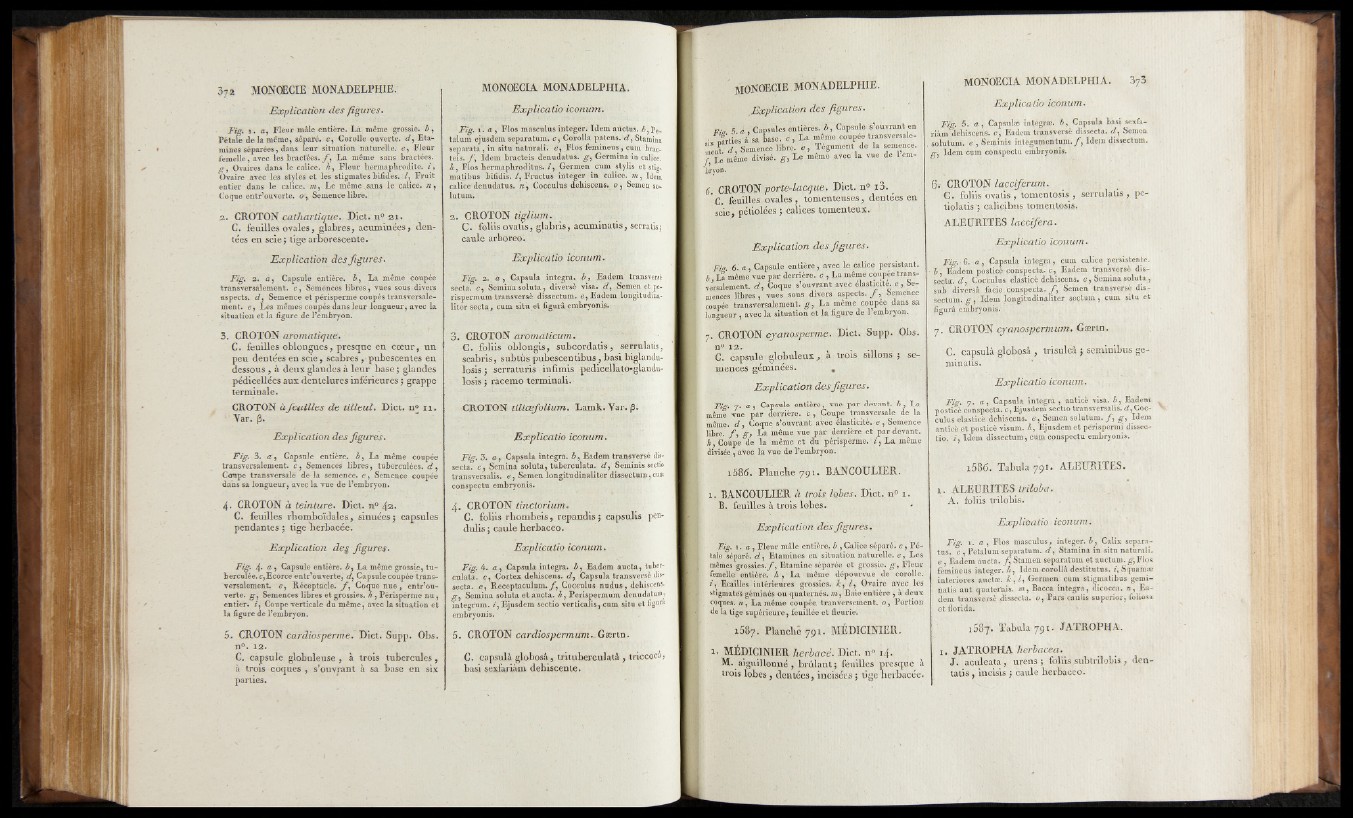 372 MONOECIE MONADELPHIE.
Explication des figures.
Fig. 1. a, Fleur mâle entière. La même grossie. b,
Pétale de la même, séparé. c, Corolle ouverte. d, Eta-
mines séparées, dans leur situation naturelle. e, Fleur
femelle, avec les bractées. f, La même sans bractées.
g, Ovaires dans le calice. h, Fleur hermaphrodite. i,
Ovaire avec les styles et les stigmates bifides. l, Fruit
entier dans le calice. m, Le même sans le calice. n,
Coque entr'ouverte. o, Semence libre.
2. CROTON cathartique. Dict. n° 21.
C. feuilles ovales, glabres, acuminées, den-
tées en scie; tige arborescente.
Explication des figures.
Fig. 2. a, Capsule entière. b, La même coupée
transversalement. c, Semences libres, vues sous divers
aspects. d, Semence et périsperme coupés transversale-
ment. e, Les mêmes coupés dans leur longueur, avec la
situation et la figure de l'embryon.
3. CROTON aromatique.
C. feuilles oblongues, presque en cœur, un
peu dentées en scie, scabres, pubescentes en
dessous, à deux glandes à leur base; glandes
pédicellées aux dentelures inférieures; grappe
terminale.
CROTON à feuilles de tilleul. Dict. n° 11.
Var. β.
Explication des figures.
Fig. 3. a, Capsule entière. b, La même coupée
transversalement. c, Semences libres, tuberculées. d,
Coupe transversale de la semence. e, Semence coupée
dans sa longueur, avec la vue de l'embryon.
4. CROTON à teinture. Dict. n° 42.
C. feuilles rhomboïdales, sinuées; capsules
pendantes; tige herbacée.
Explication des figures.
Fig. 4. a, Capsule entière. b, La même grossie, tu-
berculée. c, Ecorce entr'ouverte, d, Capsule coupée trans-
versalement. e, Réceptacle. f, Coque nue, entr'ou-
verte. g, Semences libres et grossies. h, Périsperme nu,
entier. i, Coupe verticale du même, avec la situation et
la figure de l'embryon.
5. CROTON cardiosperme. Dict. Supp. Obs.
n°. 12.
C. capsule globuleuse, à trois tubercules,
à trois coques, s'ouvrant à sa base en six
parties.
MONOECIA MONADELPHIA.
Explicatio iconum.
Fig. 1. a, Flos masculus integer. Idem auctus. b, Pe-
talum ejusdem separatum. c, Corolla patens. d, Stamina
separata, in situ naturali. e, Flos femineus, cum brac-
teis. f, Idem bracteis denudatus. g, Germina in calice.
h, Flos hermaphroditus. i, Germen cum stylis et stig-
matibus bifidis. l, Fructus integer in calice. m, Idem
calice denudatus. n, Cocculus dehiscens. o, Semen so-
lutum.
2. CROTON tiglium.
C. foliis ovatis, glabris, acuminatis, serratis;
caule arboreo.
Explicatio iconum.
Fig. 2. a, Capsula integra. b, Eadem transversè
secta. c, Semina soluta, diversè visa. d, Semen et pe-
rispermum transversè dissectum. e, Eadem longitudina-
liter secta, cum situ et figurâ embryonis.
3. CROTON aromaticum.
C. foliis oblongis, subcordatis, serrulatis,
scabris, subtùs pubescentibus, basi biglandu-
losis; serraturis infimis pedicellato-glandu-
losis; racemo terminali.
CROTON tiliæfolium. Lamk. Var. β.
Explicatio iconum.
Fig. 3. a, Capsula integra. b, Eadem transversè dis-
secta. c, Semina soluta, tuberculata. d, Seminis sectio
transversalis. e, Semen longitudinaliter dissectum, cum
conspectu embryonis.
4. CROTON tinctorium.
C. foliis rhombeis, repandis; capsulis pen-
dulis; caule herbaceo.
Explicatio iconum.
Fig. 4. a, Capsula integra. b, Eadem aucta, tuber-
culata. c, Cortex dehiscens. d, Capsula transversè dis-
secta. e, Receptaculum. f, Cocculus nudus, dehiscens.
g, Semina soluta et aucta. h, Perispermum denudatum,
integrum. i, Ejusdem sectio verticalis, cum situ et figurâ
embryonis.
5. CROTON cardiospermum. Gærtn.
C. capsulâ globosâ, trituberculatâ, tricoccâ,
basi sexfariàm dehiscente.
MONOECIE MONADELPHIE.
Explication des figures.
Fig. 5. a, Capsules entières. b, Capsule s'ouvrant en
six parties à sa base. c, La même coupée transversale-
ment. d, Semence libre. e, Tégument de la semence.
f, Le même divisé. g, Le même avec la vue de l'em-
bryon.
6. CROTON porte-lacque. Dict. n° 13.
C. feuilles ovales, tomenteuses, dentées en
scie, pétiolées; calices tomenteux.
Explication des figures.
Fig. 6. a, Capsule entière, avec le calice persistant.
b, La même vue par derrière. c, La même coupée trans-
versalement. d, Coque s'ouvrant avec élasticité. e, Se-
mences libres, vues sous divers aspects. f, Semence
coupée transversalement. g, La même coupée dans sa
longueur, avec la situation et la figure de l'embryon.
7. CROTON cyanosperme. Dict. Supp. Obs.
n° 12.
C. capsule globuleux, à trois sillons; se-
mences géminées.
Explication des figures.
Fig. 7. a, Capsule entière, vue par devant. b, La
même vue par derrière. c, Coupe transversale de la
même. d, Coque s'ouvrant avec élasticité. e, Semence
libre. f, g, La même vue par derrière et par devant.
h, Coupe de la même et du périsperme. i, La même
divisée, avec la vue de l'embryon.
1586. Planche 791. BANCOULIER.
1. BANCOULIER à trois lobes. Dict. n° 1.
B. feuilles à trois lobes.
Explication des figures.
Fig. 1. a, Fleur mâle entière. b, Calice séparé. c, Pé-
tale séparé. d, Etamines en situation naturelle. e, Les
mêmes grossies. f, Etamine séparée et grossie. g, Fleur
femelle entière. h, La même dépourvue de corolle.
i, Ecailles intérieures grossies. k, l, Ovaire avec les
stigmates géminés ou quaternés. m, Baie entière, à deux
coques. n, La même coupée transversement. o, Portion
de la tige supérieure, feuillée et fleurie.
1587. Planche 791. MÉDICINIER.
1. MÉDICINIER herbacé. Dict. n° 14.
M. aiguillonné, brûlant; feuilles presque à
trois lobes, dentées, incisées; tige herbacée.
MONOECIA MONADELPHIA. 373
Explicatio iconum.
Fig. 5. a, Capsulæ integræ. b, Capsula basi sexfa-
riàm dehiscens. c, Eadem transversè dissecta. d, Semen
solutum. e, Seminis integumentum. f, Idem dissectum.
g, Idem cum conspectu embryonis.
6. CROTON lacciferum.
C. foliis ovatis, tomentosis, serrulatis, pe-
tiolatis; calicibus tomentosis.
ALEURITES laccifera.
Explicatio iconum.
Fig. 6. a, Capsula integra, cum calice persistente.
b, Eadem posticè conspecta. c, Eadem transversè dis-
secta. d, Cocculus elasticè dehiscens. e, Semina soluta,
sub diversâ facie conspecta. f, Semen transversè dis-
sectum. g, Idem longitudinaliter sectum, cum situ et
figurâ embryonis.
7. CROTON cyanospermum. Gærtn.
C. capsulâ globosâ, trisulcâ; seminibus ge-
minatis.
Explicatio iconum.
Fig. 7. a, Capsula integra, anticè visa. b, Eadem
posticè conspecta. c, Ejusdem sectio transversalis. d, Coc-
culus elasticè dehiscens. e, Semen solutum. f, g, Idem
anticè et posticè visum. h, Ejusdem et perispermi dissec-
tio. i, Idem dissectum, cum conspectu embryonis.
1586. Tabula 791. ALEURITES.
1. ALEURITES triloba.
A. foliis trilobis.
Explicatio iconum.
Fig. 1. a, Flos masculus, integer. b, Calix separa-
tus. c, Petalum separatum. d, Stamina in situ naturali.
e, Eadem aucta. f, Stamen separatum et auctum. g, Flos
femineus integer. h, Idem corollâ destitutus. i, Squamæ
interiores auctæ. k, l, Germen cum stigmatibus gemi-
natis aut quaternis. m, Bacca integra, dicocca. n, Ea-
dem transversè dissecta. o, Pars caulis superior, foliosa
et florida.
1587. Tabula 791. JATROPHA.
1. JATROPHA herbacea.
J. aculeata, urens; foliis subtrilobis, den-
tatis, incisis; caule herbaceo.